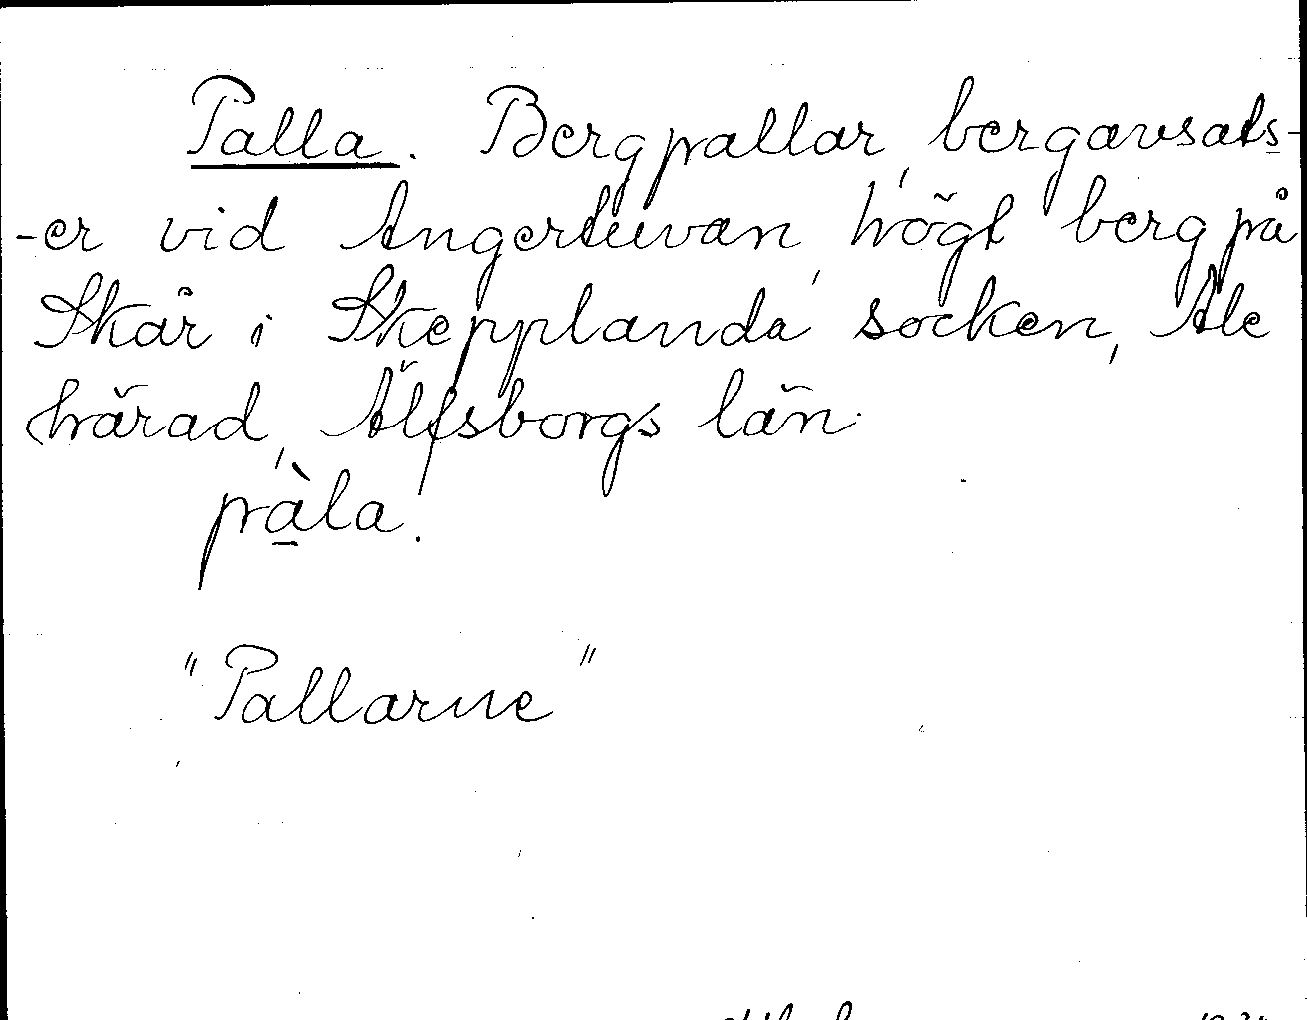 Palla. Bergpallar, bergavsats-
-er vid Angertuvan, högt berg på
Skår i Skepplanda socken, Ale
härad, Älfsborgs län.
pàla.
"Pallarne"